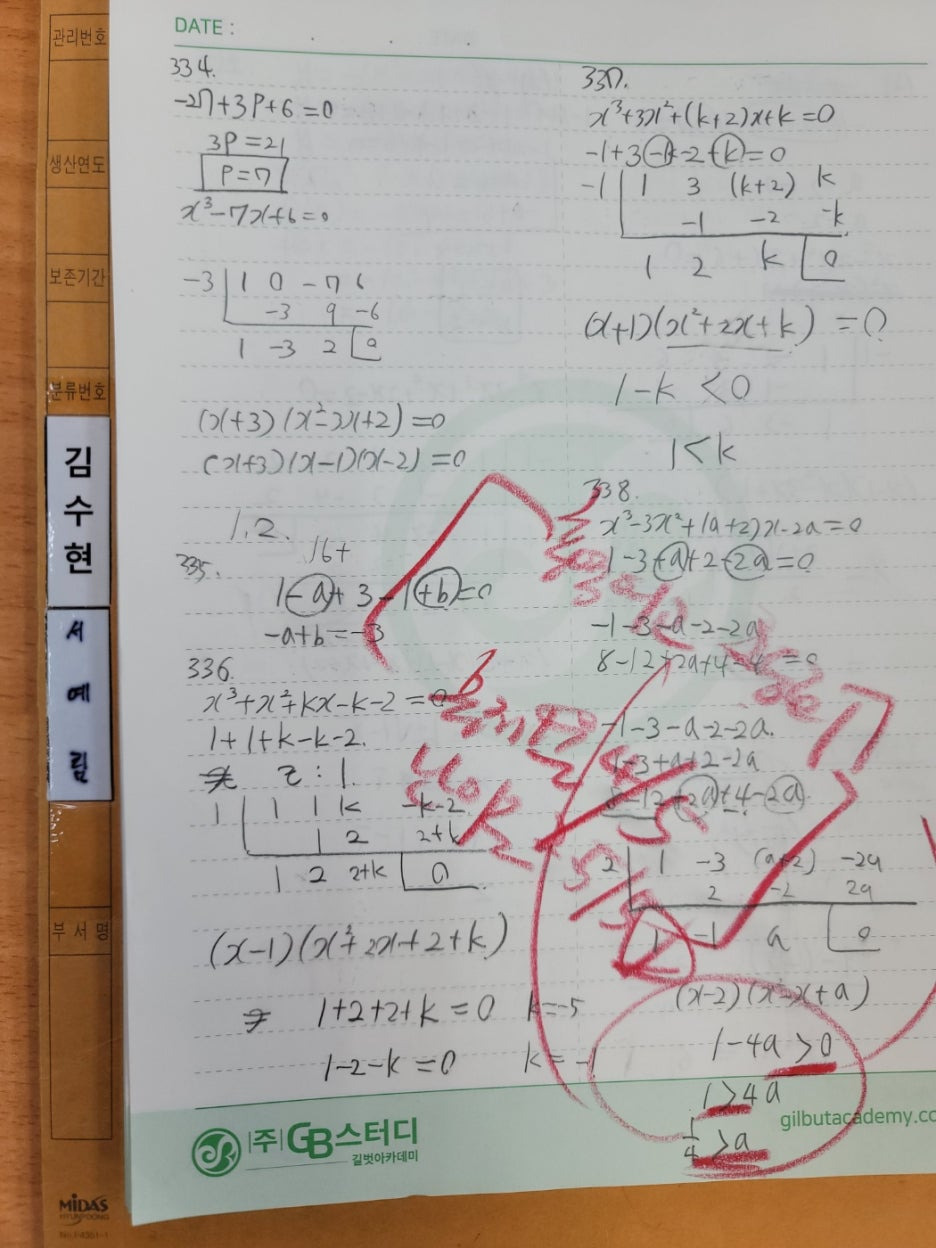 관리번호
생산연도
보존기간
분류번호
김수현
서예림
부서명
MIDAS
DATE :
334.
-27+3P+6=0
3P=21
P=7
x³-7x+6=0
-3 | 1 0 -7 6
-3 9 -6
1 -3 2 0
(x+3)(x²-3x+2)=0
(x+3)(x-1)(x-2)=0
1.2.
16+
335.
1-a+3-1+b=0
-a+b=-3
336.
x³+x²+kx-k-2=0
1+1+k-k-2.
1.
1 | 1 1 k -k-2
1 2 2+k
1 2 2+k 0
(x-1)(x²+2x+2+k)
1+2+2+k=0 k=-5
1-2-k=0 k=-1
337.
x³+3x²+(k+2)x+k=0
-1+3-k-2+k=0
-1 | 1 3 (k+2) k
-1 -2 -k
1 2 k 0
(x+1)(x²+2x+k)=0
1-k<0
1<k
338.
x³-3x²+(a+2)x-2a=0
1-3+a+2-2a=0
-1-3-a-2-2a
8-12+2a+4-4 =0
-1-3-a-2-2a.
1-3+a+2-2a
8-12+2a+4-2a
2 | 1 -3 (a+2) -2a
2 -2 2a
1 -1 a 0
(x-2)(x²-x+a)
1-4a>0
1>4a
1/4>a
(주)GB스터디
길벗아카데미
gilbutacademy.co